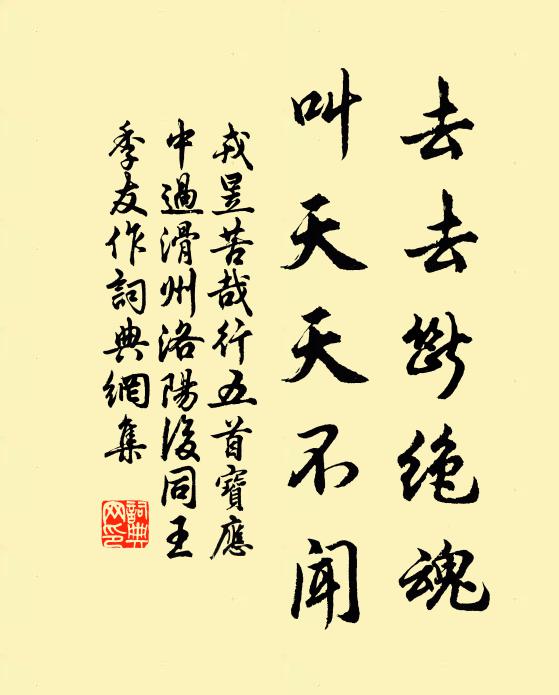 去去斷絶魂
叫天天不聞
戎昱苦哉行五首寶應
中過滑州洛陽後同王
季友作詞典網集
詞典
网印